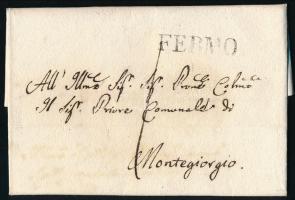 FERMO
All' Illmo Sigr. Sigr. Prone Colmo
Il Sigr. Priore Comunale di
Montegiorgio.